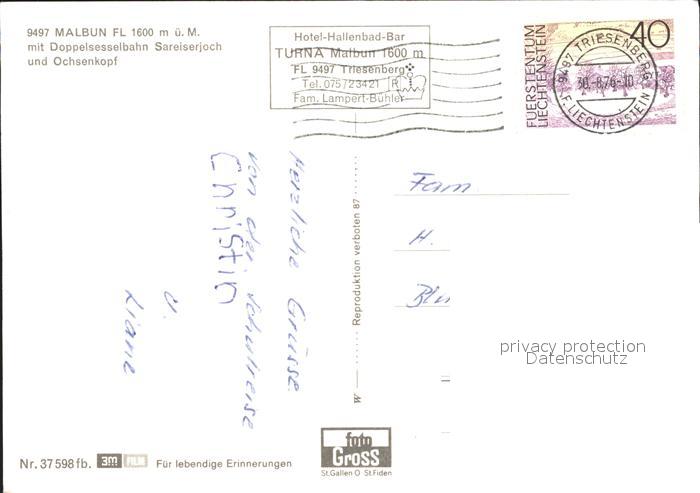 9497 MALBUN FL 1600 m ü. M.
mit Doppelsesselbahn Sareiserjoch
und Ochsenkopf
Hotel-Hallenbad-Bar
TURNA Malbun 1600 m
FL 9497 Triesenberg
Tel. 075/23421 R
Fam. Lampert-Bühler
FUERSTENTUM
LIECHTENSTEIN
40
9497 TRIESENBERG
30.-8.76-10
F. LIECHTENSTEIN
Herzliche Grüsse
von der Schulreise
Christin
u.
Liane
W — Reproduktion verboten 87
Fam.
H.
privacy protection
Datenschutz
Nr. 37598 fb. 3m FILM Für lebendige Erinnerungen
foto
Gross
St.Gallen O St.Fiden